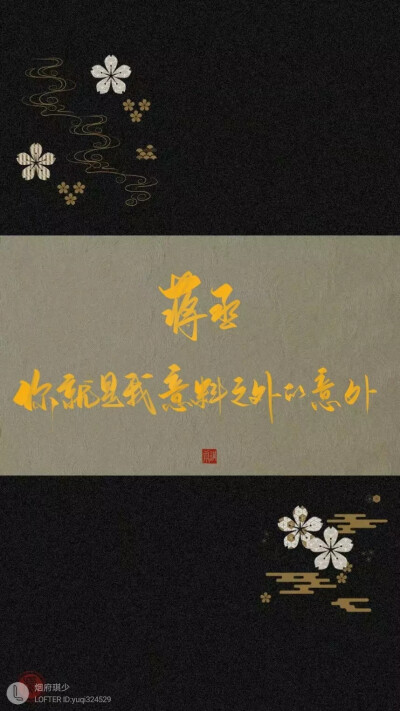 蒋丞
你就是我意料之外的意外
烟府琪少
LOFTER ID:yuqi324529